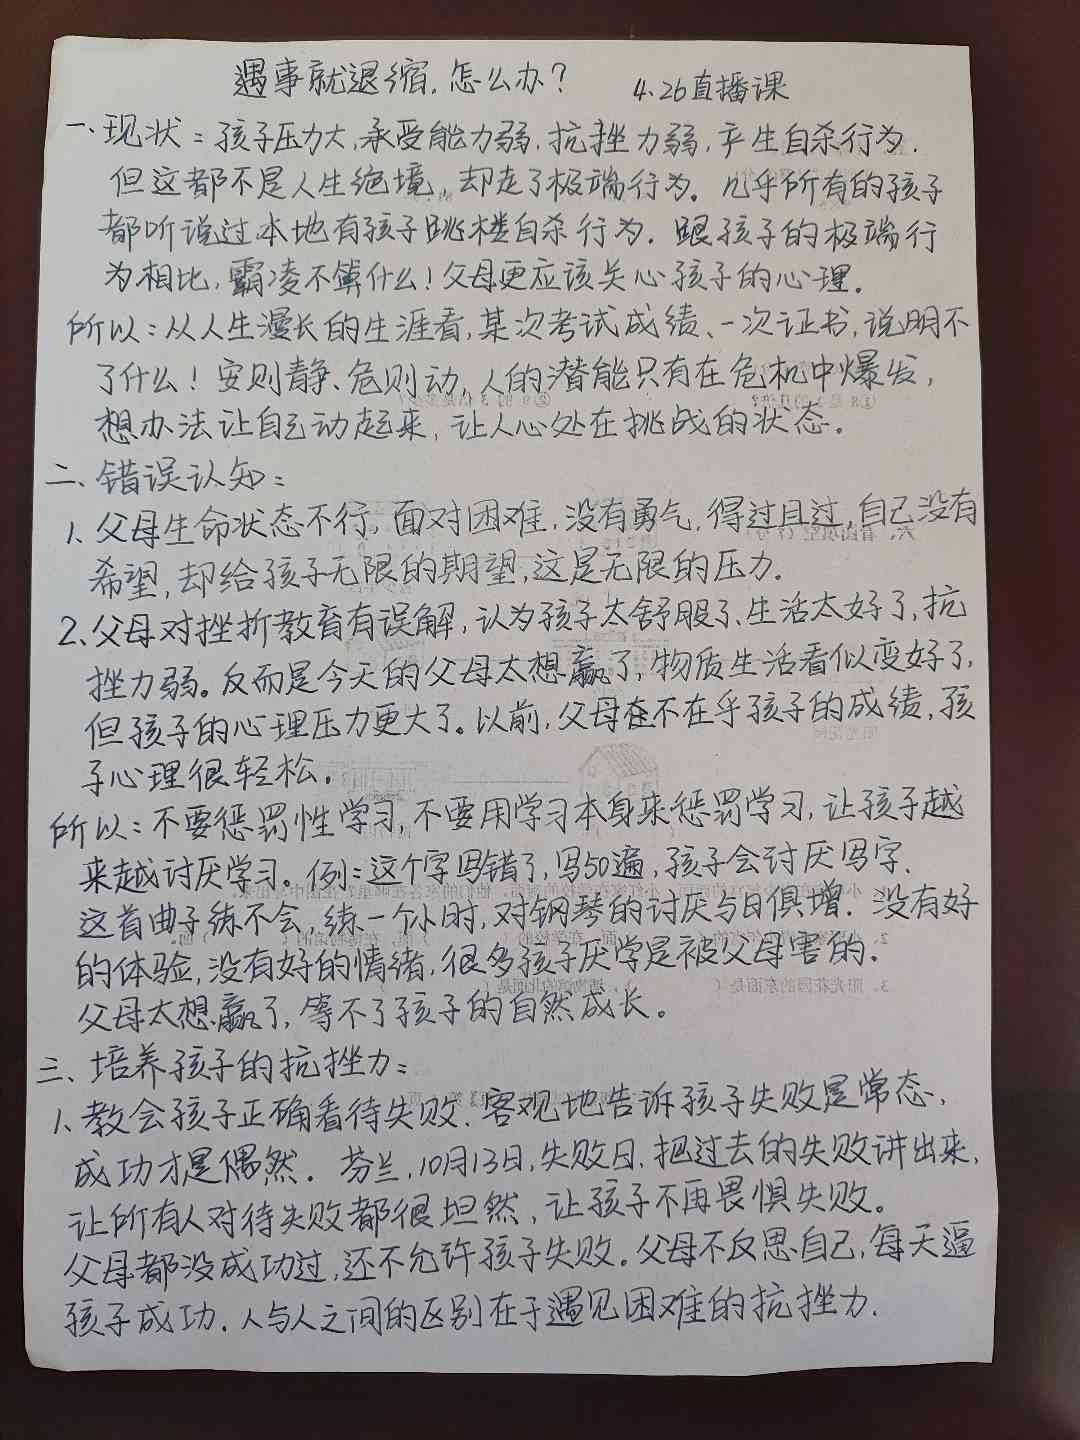 遇事就退缩，怎么办？ 4.26直播课
一、现状：孩子压力大，承受能力弱，抗挫力弱，产生自杀行为.
但这都不是人生绝境，却走了极端行为。几乎所有的孩子
都听说过本地有孩子跳楼自杀行为．跟孩子的极端行
为相比，霸凌不算什么！父母更应该关心孩子的心理.
所以：从人生漫长的生涯看，某次考试成绩、一次证书，说明不
了什么！安则静、危则动，人的潜能只有在危机中爆发，
想办法让自己动起来，让人心处在挑战的状态。
二、错误认知：
1、父母生命状态不行，面对困难，没有勇气，得过且过，自己没有
希望，却给孩子无限的期望，这是无限的压力.
2、父母对挫折教育有误解，认为孩子太舒服了、生活太好了，抗
挫力弱。反而是今天的父母太想赢了，物质生活看似变好了，
但孩子的心理压力更大了。以前，父母不在乎孩子的成绩，孩
子心理很轻松.
所以：不要惩罚性学习，不要用学习本身来惩罚学习，让孩子越
来越讨厌学习。例：这个字写错了，写50遍，孩子会讨厌写字.
这首曲子练不会，练一个小时，对钢琴的讨厌与日俱增．没有好
的体验，没有好的情绪，很多孩子厌学是被父母害的。
父母太想赢了，等不了孩子的自然成长。
三、培养孩子的抗挫力：
1、教会孩子正确看待失败．客观地告诉孩子失败是常态，
成功才是偶然．芬兰，10月13日，失败日．把过去的失败讲出来，
让所有人对待失败都很坦然，让孩子不再畏惧失败。
父母都没成功过，还不允许孩子失败。父母不反思自己，每天逼
孩子成功．人与人之间的区别在于遇见困难的抗挫力.